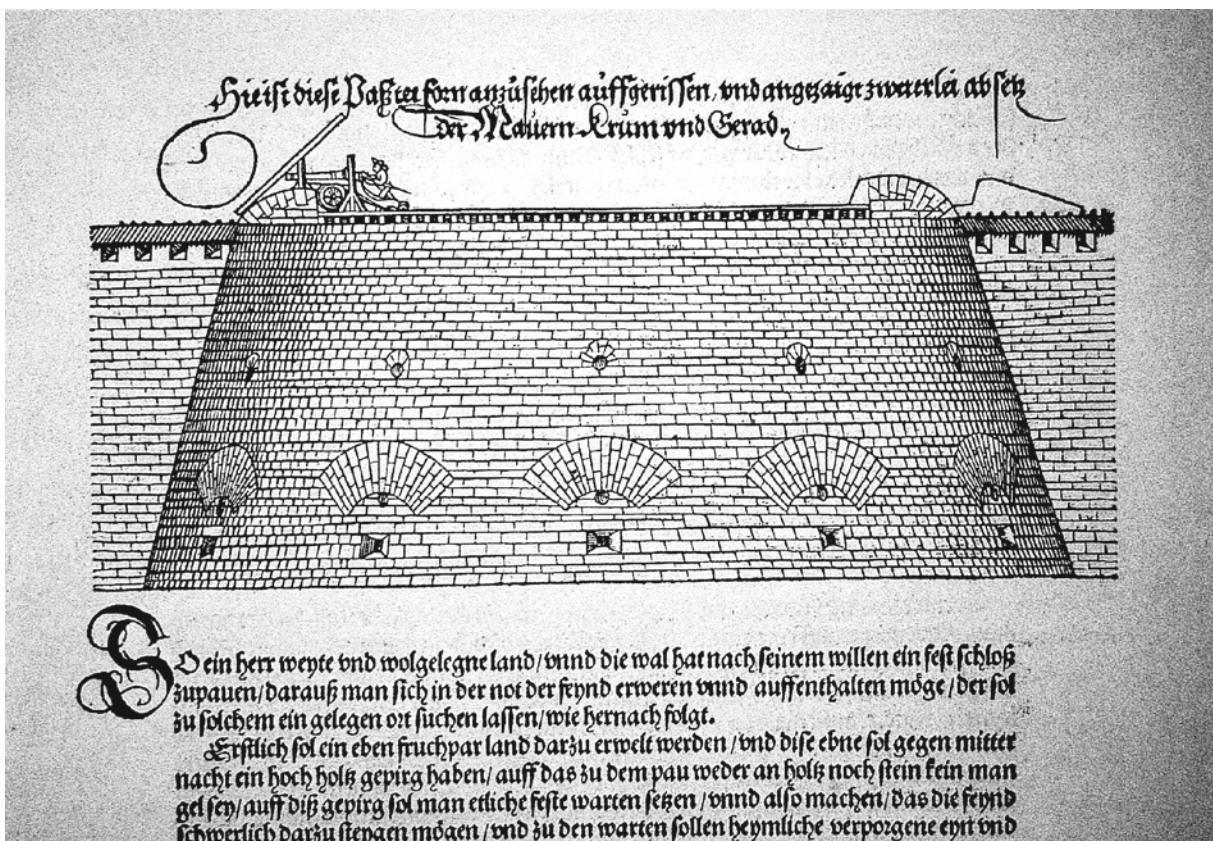 Hie ist diese Paßtei forn anzusehen auffgerissen, vnd angezaigt zweierlei absetz
der Mauern Krum vnd Gerad.
SO ein herr weyte vnd wolgelegne land/ vnnd die wal hat nach seinem willen ein fest schloß
zupauen/ darauß man sich in der not der feynd erweren vnnd auffenthalten möge/ der sol
zu solchem ein gelegen ort suchen lassen/ wie hernach folgt.
Erstlich sol ein eben fruchpar land darzu erwelt werden/ vnd dise ebne sol gegen mitter
nacht ein hoch holtz gepirg haben/ auff das zu dem pau weder an holtz noch stein kein man
gel sey/ auff diß gepirg sol man etliche feste warten setzen/ vnnd also machen/ das die feynd
schwerlich darzu steygen mögen/ vnd zu den warten sollen heymliche verporgene eyn vnd